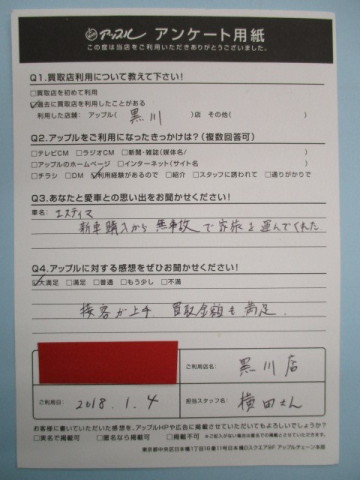 アップル アンケート用紙
この度は当店をご利用いただきありがとうございました。
Q1.買取店利用について教えて下さい!
□買取店を初めて利用
☑過去に買取店を利用したことがある
利用した店舗: アップル( 黒川 )店 その他( )
Q2.アップルをご利用になったきっかけは?(複数回答可)
□テレビCM □ラジオCM □新聞・雑誌(媒体名/ )
□アップルのホームページ □インターネット(サイト名 )
□チラシ □DM ☑利用経験があるので □紹介 □スタッフに誘われて □通りがかりで
Q3.あなたと愛車との思い出をお聞かせください!
車名: エスティマ
新車購入から無事故で家族を運んでくれた
Q4.アップルに対する感想をぜひお聞かせください!
☑大満足 □満足 □普通 □もう少し □不満
接客が上手 買取金額も満足.
ご利用店名: 黒川店
ご利用日: 2018.1.4
担当スタッフ名: 横田さん
お客様に書いていただいた感想を、アップルHPや広告に掲載させていただいてもよろしいでしょうか?
□実名で掲載可 □匿名なら掲載可 □掲載不可
東京都中央区日本橋1丁目16番11号日本橋Dスクエア9F アップルチェーン本部